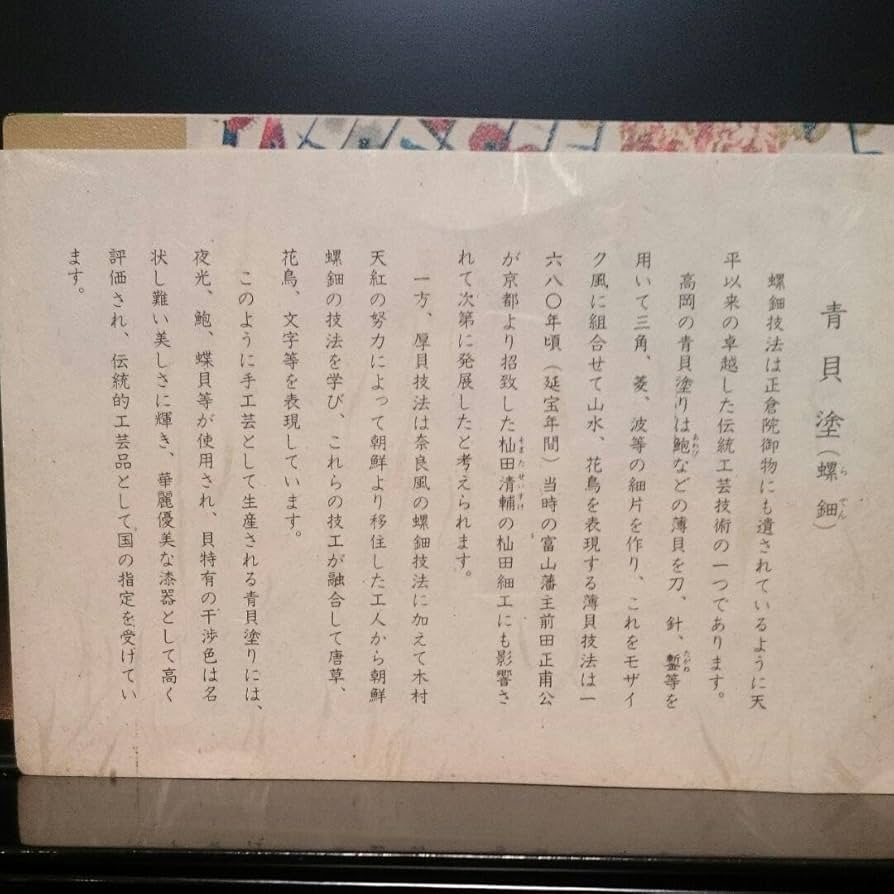 青貝塗（螺鈿）
螺鈿技法は正倉院御物にも遺されているように天
平以来の卓越した伝統工芸技術の一つであります。
高岡の青貝塗りは鮑などの薄貝を刀、針、鏨等を
用いて三角、菱、波等の細片を作り、これをモザイ
ク風に組合せて山水、花鳥を表現する薄貝技法は一
六八〇年頃（延宝年間）当時の富山藩主前田正甫公
が京都より招致した杣田清輔の杣田細工にも影響さ
れて次第に発展したと考えられます。
一方、厚貝技法は奈良風の螺鈿技法に加えて木村
天紅の努力によって朝鮮より移住した工人から朝鮮
螺鈿の技法を学び、これらの技工が融合して唐草、
花鳥、文字等を表現しています。
このように手工芸として生産される青貝塗りには、
夜光、鮑、蝶貝等が使用され、貝特有の干渉色は名
状し難い美しさに輝き、華麗優美な漆器として高く
評価され、伝統的工芸品として国の指定を受けてい
ます。